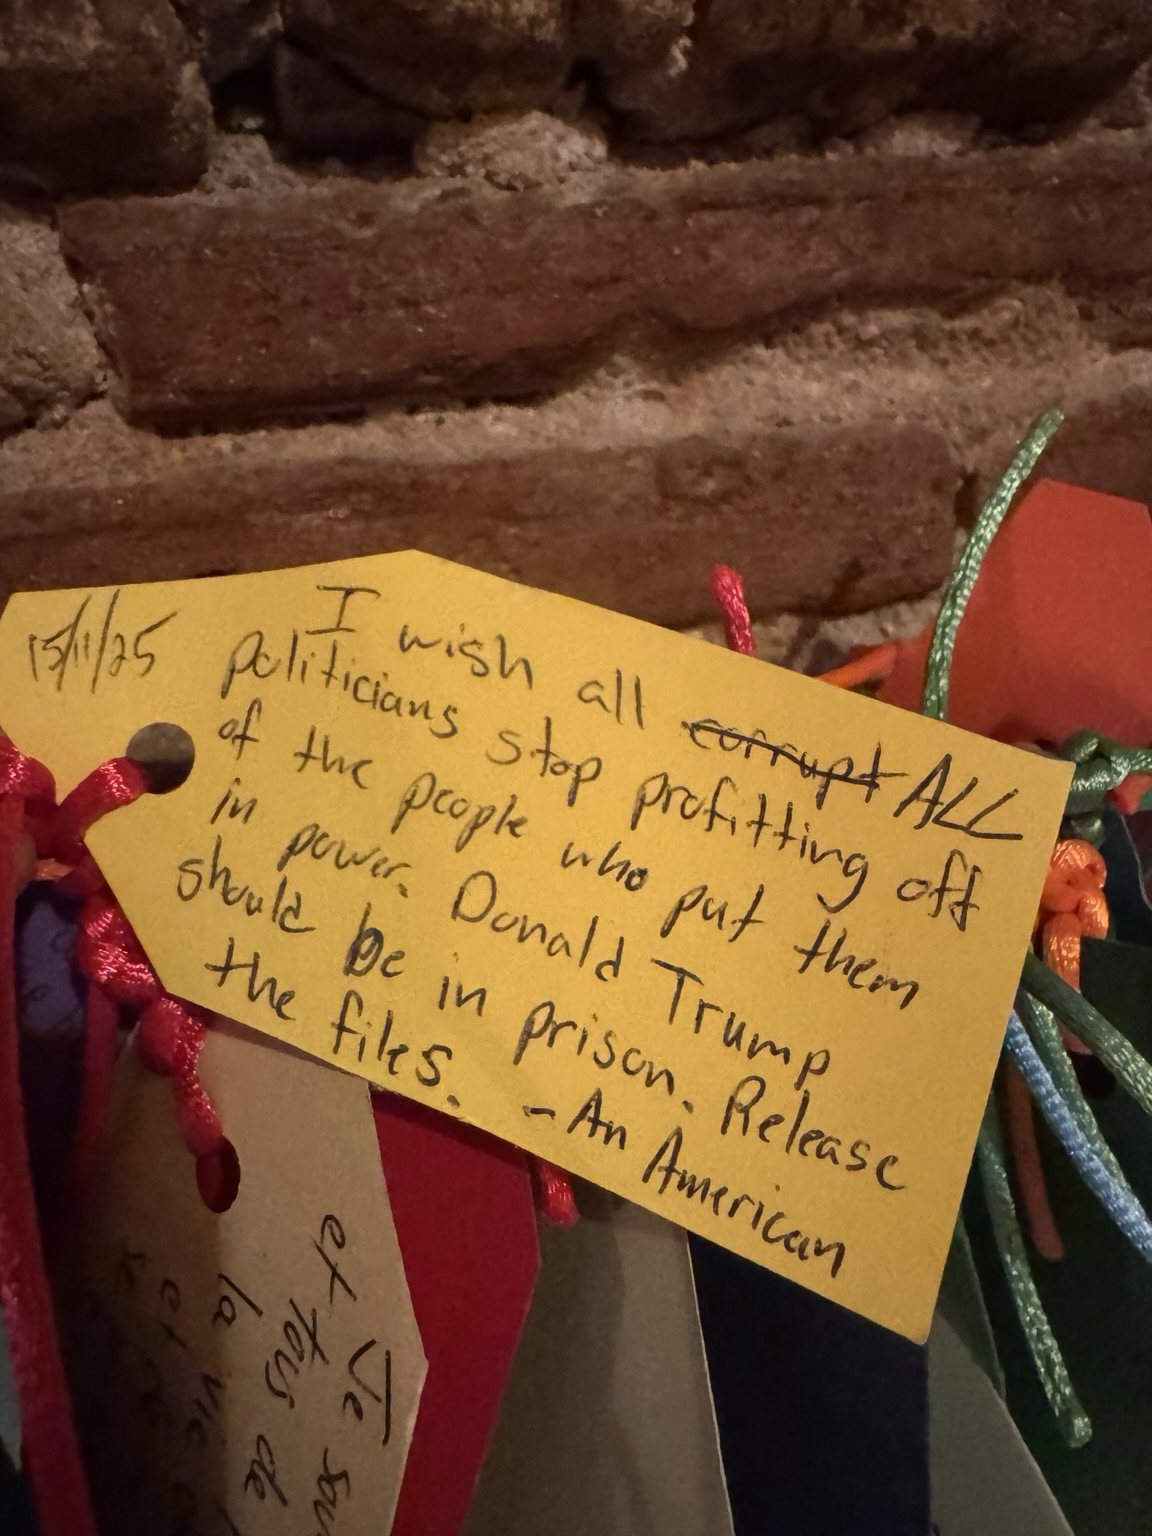 15/11/25
I wish all corrupt ALL
politicians stop profitting off
of the people who put them
in power. Donald Trump
should be in prison. Release
the files. - An American
Je
et tous de
la vie
et